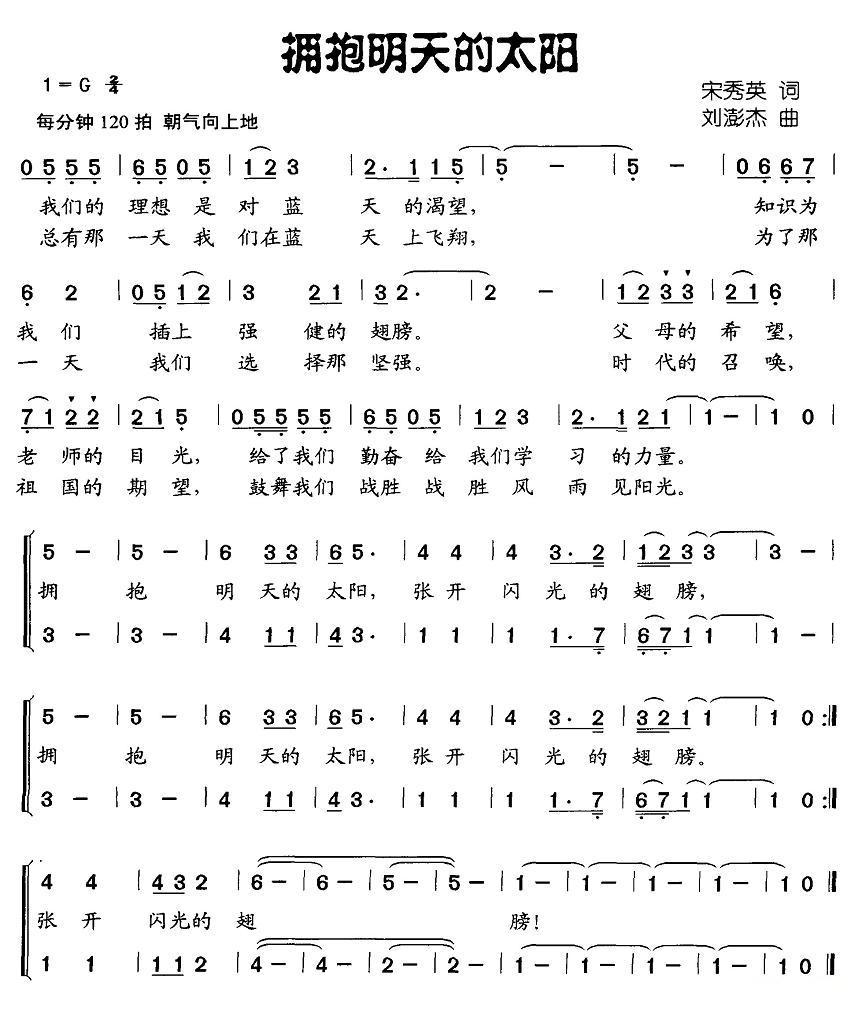 拥抱明天的太阳
1=G 2/4
宋秀英 词
每分钟 120 拍 朝气向上地
刘澎杰 曲
0 5 5 5 | 6 5 0 5 | 1 2 3 | 2· 1 1 1 5 | 5 － | 5 － | 0 6 6 7 |
我们的 理想 是 对 蓝 天 的渴望， 知识为
总有那 一天 我 们在蓝 天 上飞翔， 为了那
6 2 | 0 5 1 2 | 3 2 1 | 3 2· | 2 － | 1 2 3 3 | 2 1 6 |
我 们 插上 强 健的 翅膀。 父 母的 希 望，
一 天 我们 选 择那 坚强。 时 代的 召 唤，
7 1 2 2 | 2 1 5 | 0 5 5 5 5 | 6 5 0 5 | 1 2 3 | 2· 1 2 1 | 1 － | 1 0 |
老 师的 目 光， 给了我们 勤奋 给 我们学 习 的力量。
祖 国的 期 望， 鼓舞我们 战胜 战 胜 风 雨 见阳光。
5 － | 5 － | 6 3 3 | 6 5· | 4 4 | 4 3· 2 | 1 2 3 3 | 3 － |
拥 抱 明 天的 太阳， 张 开 闪 光 的 翅 膀，
3 － | 3 － | 4 1 1 | 4 3· | 1 1 | 1 1· 7 | 6 7 1 1 | 1 － |
5 － | 5 － | 6 3 3 | 6 5· | 4 4 | 4 3· 2 | 3 2 1 1 | 1 0 :‖
拥 抱 明 天的 太阳， 张 开 闪 光 的 翅 膀。
3 － | 3 － | 4 1 1 | 4 3· | 1 1 | 1 1· 7 | 6 7 1 1 | 1 0 :‖
4 4 | 4 3 2 | 6 － | 6 － | 5 － | 5 － | 1 － | 1 － | 1 － | 1 － | 1 0 ‖
张 开 闪光的 翅 膀！
1 1 | 1 1 2 | 4 － | 4 － | 2 － | 2 － | 1 － | 1 － | 1 － | 1 － | 1 0 ‖